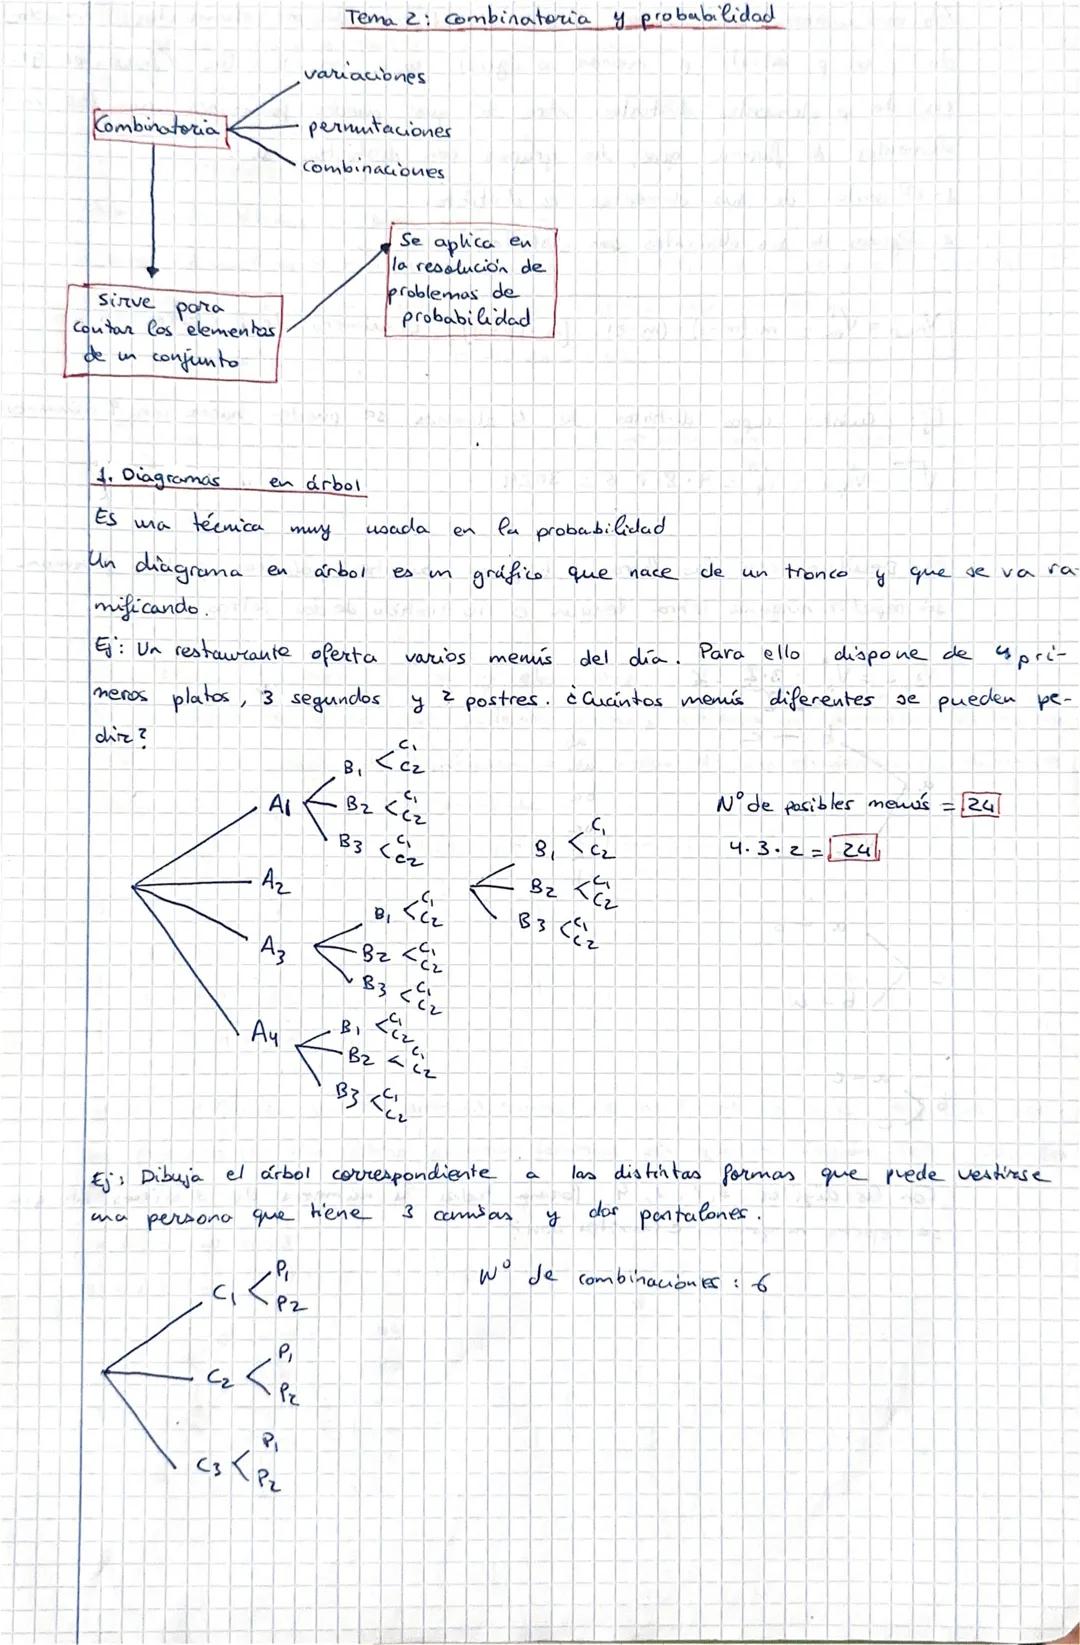 Tema 2: combinatoria y probabilidad
variaciones
Combinatoria
permutaciones
combinaciones
Se aplica en
la resolución de
problemas de
probabilidad
sirve para
contar los elementos
de un conjunto
1. Diagramas en árbol
Es una técnica muy usada en la probabilidad
Un diagrama en árbol es un gráfico que nace de un tronco y que se va ra-
mificando.
Ej: Un restaurante oferta varios menús del día. Para ello dispone de 4 pri-
meros platos, 3 segundos y 2 postres. ¿Cuántos menús diferentes se pueden pe-
dir?
A1
B1 C1 C2
B2 C1 C2
B3 C1 C2
A2
B1 C1 C2
B2 C1 C2
B3 C1 C2
A3
B1 C1 C2
B2 C1 C2
B3 C1 C2
A4
B1 C1 C2
B2 C1 C2
B3 C1 C2
Nº de posibles menús = 24
4.3.2 = 24
Ej: Dibuja el árbol correspondiente a las distintas formas que puede vestirse
una persona que tiene 3 camisas y dos pantalones.
C1 P1 P2
C2 P1 P2
C3 P1 P2
Nº de combinaciones: 6